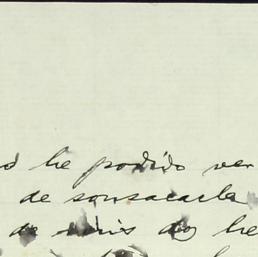 he podido ver
de sonsacarla
de mis dos he